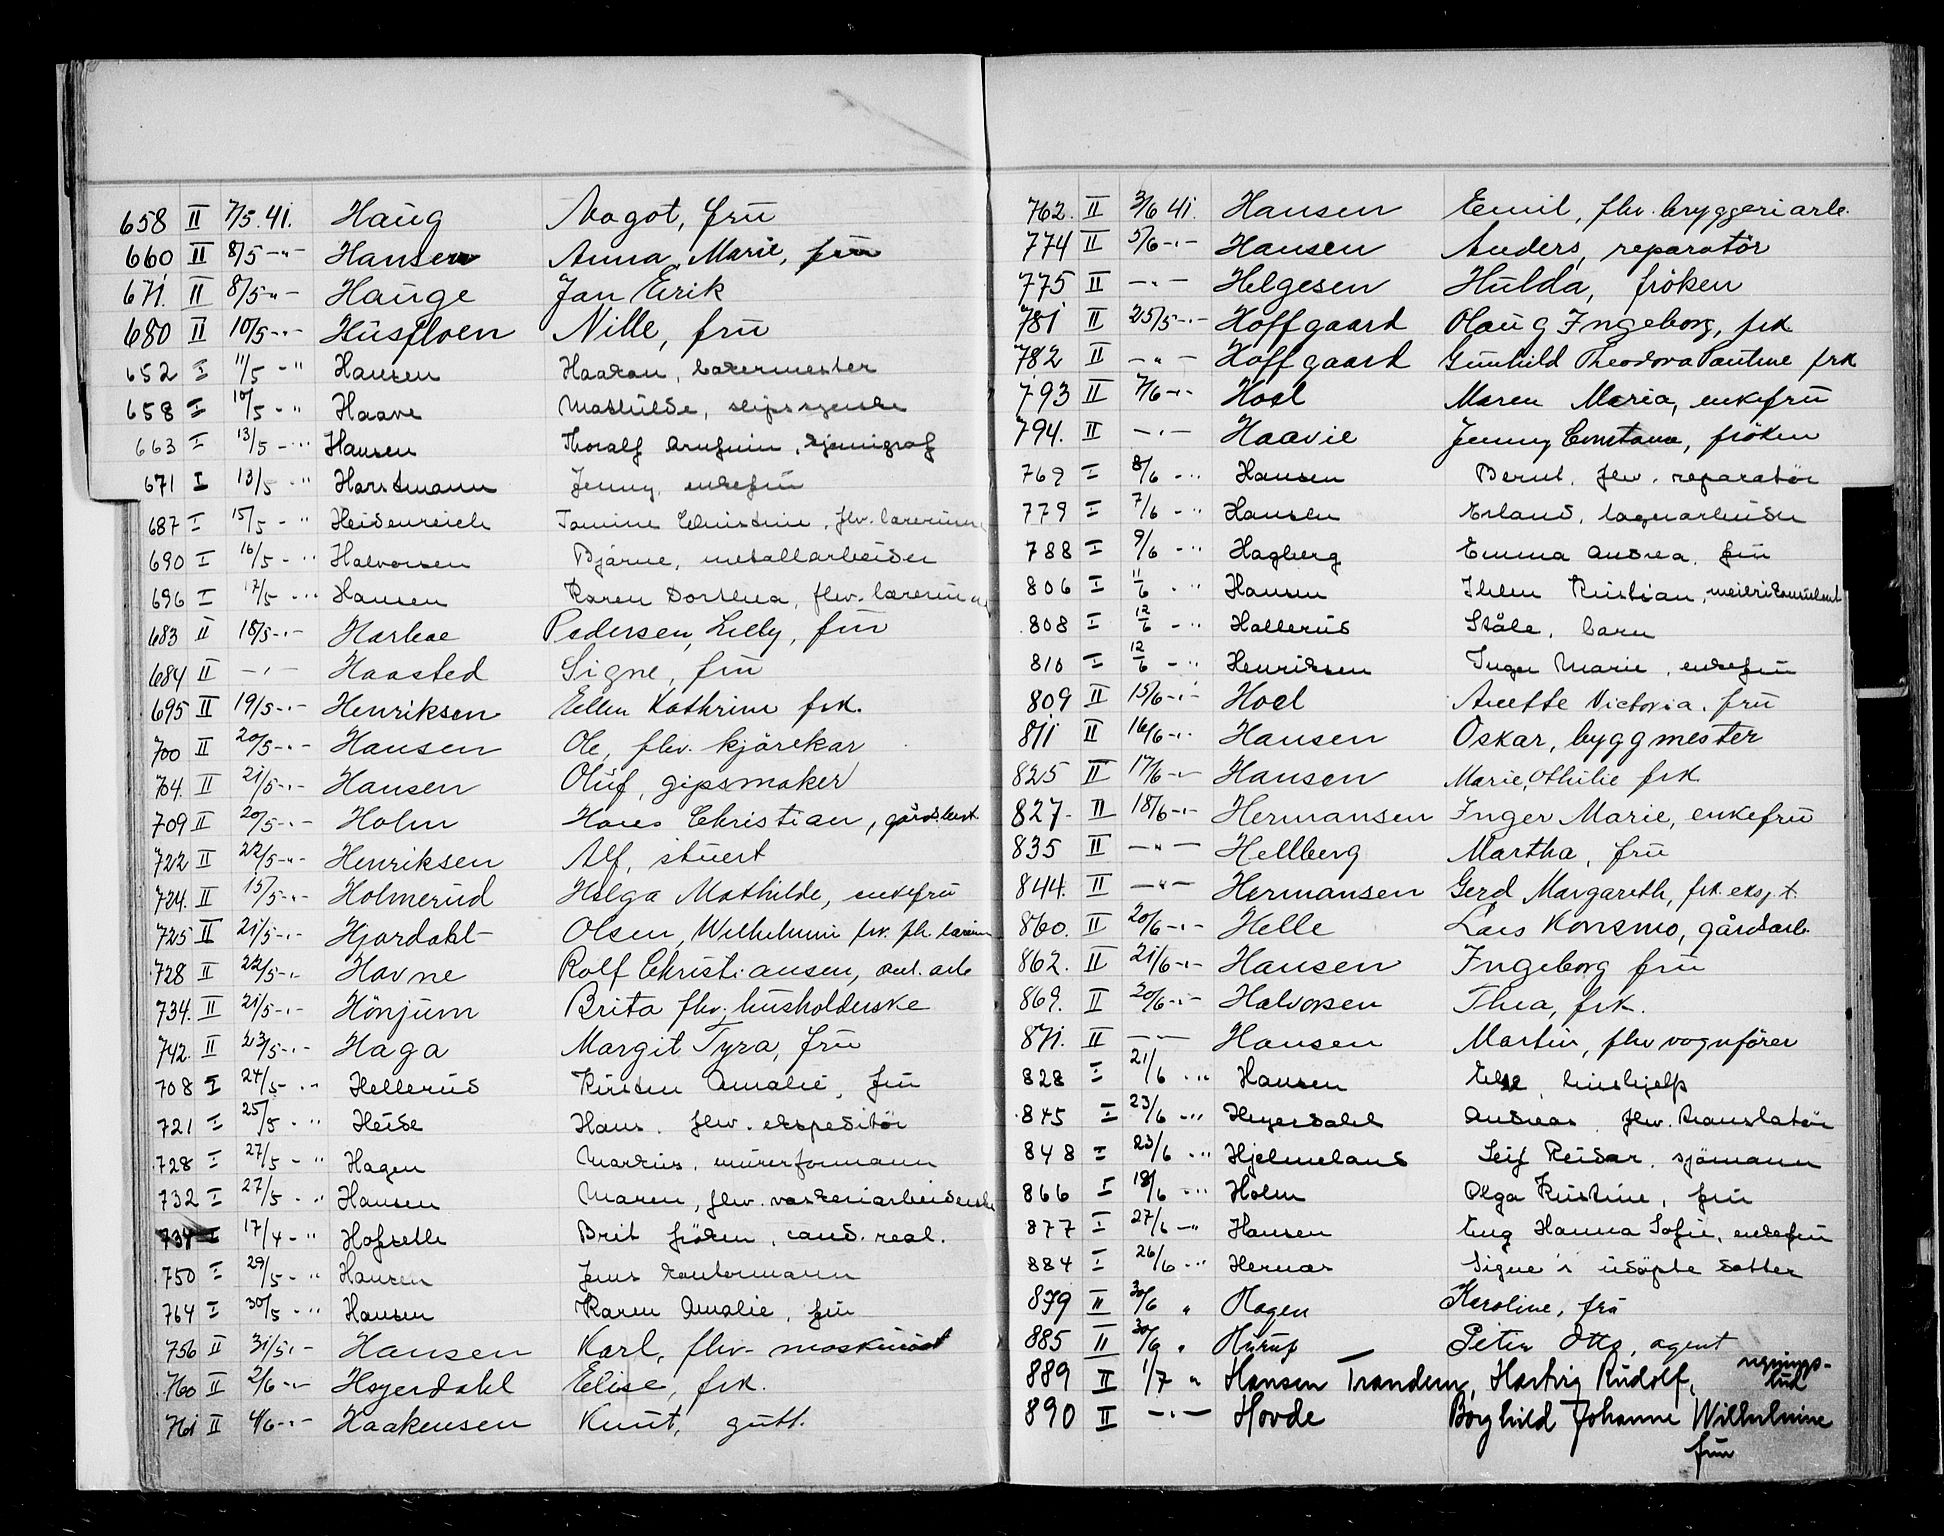 658 II 7/5.41. Haug Magot, fru
660 II 8/5 -"- Hansen Anna Marie, fru
671. II 8/5 -"- Hauge Jan Erik
680 II 10/5 -"- Husfloen Nille, fru
652 I 11/5 - " Hansen Haakon, bakermester
658 I 10/5 - " Haave Mathilde, slipssyerske
663 I 13/5 - " Hansen Thoralf Arnfinn, kjemigraf
671 I 13/5 - " Horstmann Jenny, enkefru
687 I 15/5 - " Heidenreich Tomine Christine, fhv. lærerinne
690 I 16/5 - " Halvorsen Bjarne, metallarbeider
696 I 17/5 - " Hansen Karen Dorthea, fhv. lærerinne
683 II 18/5 -"- Harboe Pedersen, Lilly, fru
684 II -"- Haasted Signe, fru
695 II 19/5 -"- Henriksen Ellen Kathrine frk.
700 II 20/5 -"- Hansen Ole, fhv. kjørekar
704. II 21/5 -"- Hansen Oluf, gipsmaker
709 II 20/5 -"- Holm Hans Christian, gårdsbest.
722 II 22/5 -"- Henriksen Alf, stuert
724. II 15/5 -"- Holmerud Helga Mathilde, enkefru
725 II 21/5 -"- Hjordahl Olsen, Wilhelmine frk. fh. lærerin
728 II 22/5 -"- Havne Rolf Christiansen, anl. arb
734. II 21/5 -"- Hønjum Brita fhv. husholderske
742. II 23/5 -"- Haga Margit Tyra, fru
708 I 24/5 - " Hellerud Kirsten Amalie, fru
721 I 25/5 - " Heide Hans. fhv. ekspeditør
728 I 27/5 - " Hagen Markus, murerformann
732 I 27/5 - " Hansen Maren, fhv. vaskeriarbeiderske
734 I 17/4 - " Hofseth Brit frøken, cand. real.
750 I 29/5 - " Hansen Jens kontormann
764 I 30/5 - " Hansen Karen Amalie, fru
756 II 31/5 - Hansen Karl, fhv. maskinist
760 II 2/6 -"- Heyerdahl Elise, frk.
761 II 4/6 -"- Haakensen Knut, gutt.
762. II 3/6 41. Hansen Emil, fhv. bryggeriarb.
774 II 5/6 -"- Hansen Anders, reparatør
775 II -"- Helgesen Hulda, frøken
781 II 25/5 -"- Hoffgaard Olaug Ingeborg, frk
782 II -"- Hoffgaard Gunhild Theodora Pauline frk
793 II 7/6 -"- Hoel Maren Maria, enkefru
794. II -"- Haavie Jenny Constance, frøken
769 I 8/6 - " Hansen Bernt. fhv. reparatør
779 I 7/6 - " Hansen Erland, lagerarbeider
788 I 9/6 - " Hagberg Emma Andrea, fru
806 I 11/6 - " Hansen Ihlen Kristian, meierikonsulent
808 I 12/6 - " Hallerud Ståle, barn
810 I 12/6 - " Henriksen Inger Marie, enkefru
809 II 15/6 -"- Hoel Anette Victoria, fru
811 II 16/6 -"- Hansen Oskar, byggmester
825 II 17/6 -"- Hansen Marie, Othilie frk
827. II 18/6 -"- Hermansen Inger Marie, enkefru
835 II -"- Hellberg Martha, fru
844. II -"- Hermansen Gerd Margareth, frk. eksp.t.
860. II 20/6 -"- Helle Lars Konsmo, gårdarb.
862. II 21/6 -"- Hansen Ingeborg fru
869. II 20/6 -"- Halvorsen Thea, frk.
871. II -"- Hansen Martin, fhv vognfører
828 I 21/6 - " Hansen Else, hushjelp
845 I 23/6 - " Heyerdahl Andreas, fhv. translatør
848 I 23/6 - " Hjelmeland Leif Reidar, sjømann
866 I 18/6 - " Holm Olga Kristine, fru
877 I 27/6 - " Hansen Eng Hanna Sofie, enkefru
884 I 26/6 - " Hernas Signe's udøpte datter
879 II 30/6 " Hagen Karoline, fru
885 II 30/6 " Hurup Peter Otto, agent
889 II 1/7 " Hansen Trandem, Hartvig Rudolf, regnings-
bud
890 II -"- Hovde Borghild Johanne Wilhelmine
fru